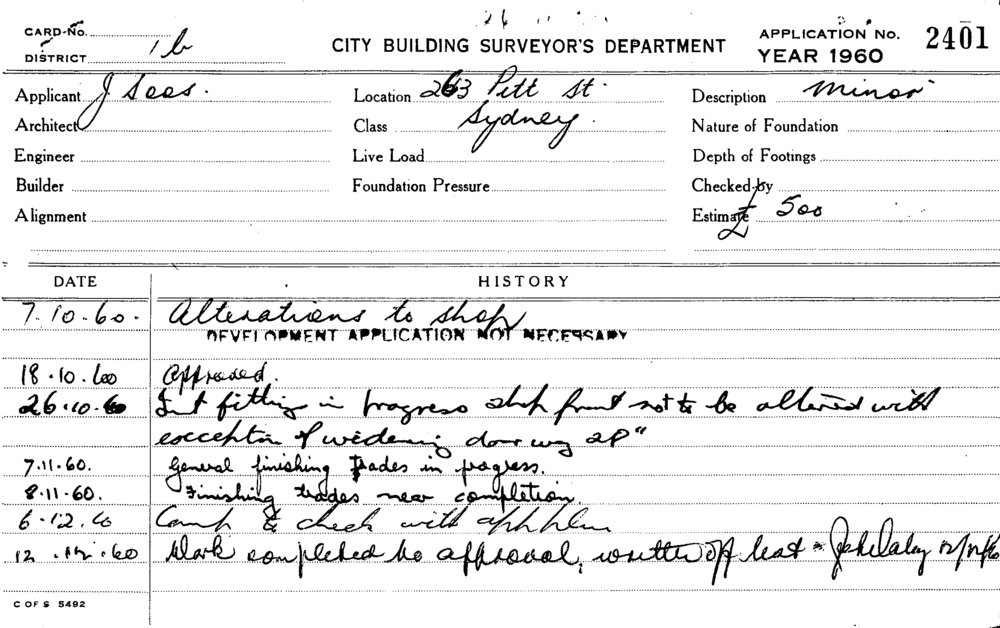 CARD No.
DISTRICT 1b
CITY BUILDING SURVEYOR'S DEPARTMENT
APPLICATION No. 2401
YEAR 1960
Applicant J Sees.
Location 263 Pitt St.
Description Minor
Architect
Class Sydney.
Nature of Foundation
Engineer
Live Load
Depth of Footings
Builder
Foundation Pressure
Checked by
Alignment
Estimate £ 500
DATE HISTORY
7.10.60. Alterations to shop
DEVELOPMENT APPLICATION NOT NECESSARY
18.10.60 Approved.
26.10.60 Int fitting in progress shop front not to be altered with
exception of widening door way
7.11.60. General finishing trades in progress.
8.11.60. Finishing trades near completion.
6.12.60 & check with
12.12.60 Work completed to approval, written off
C OF S 5492